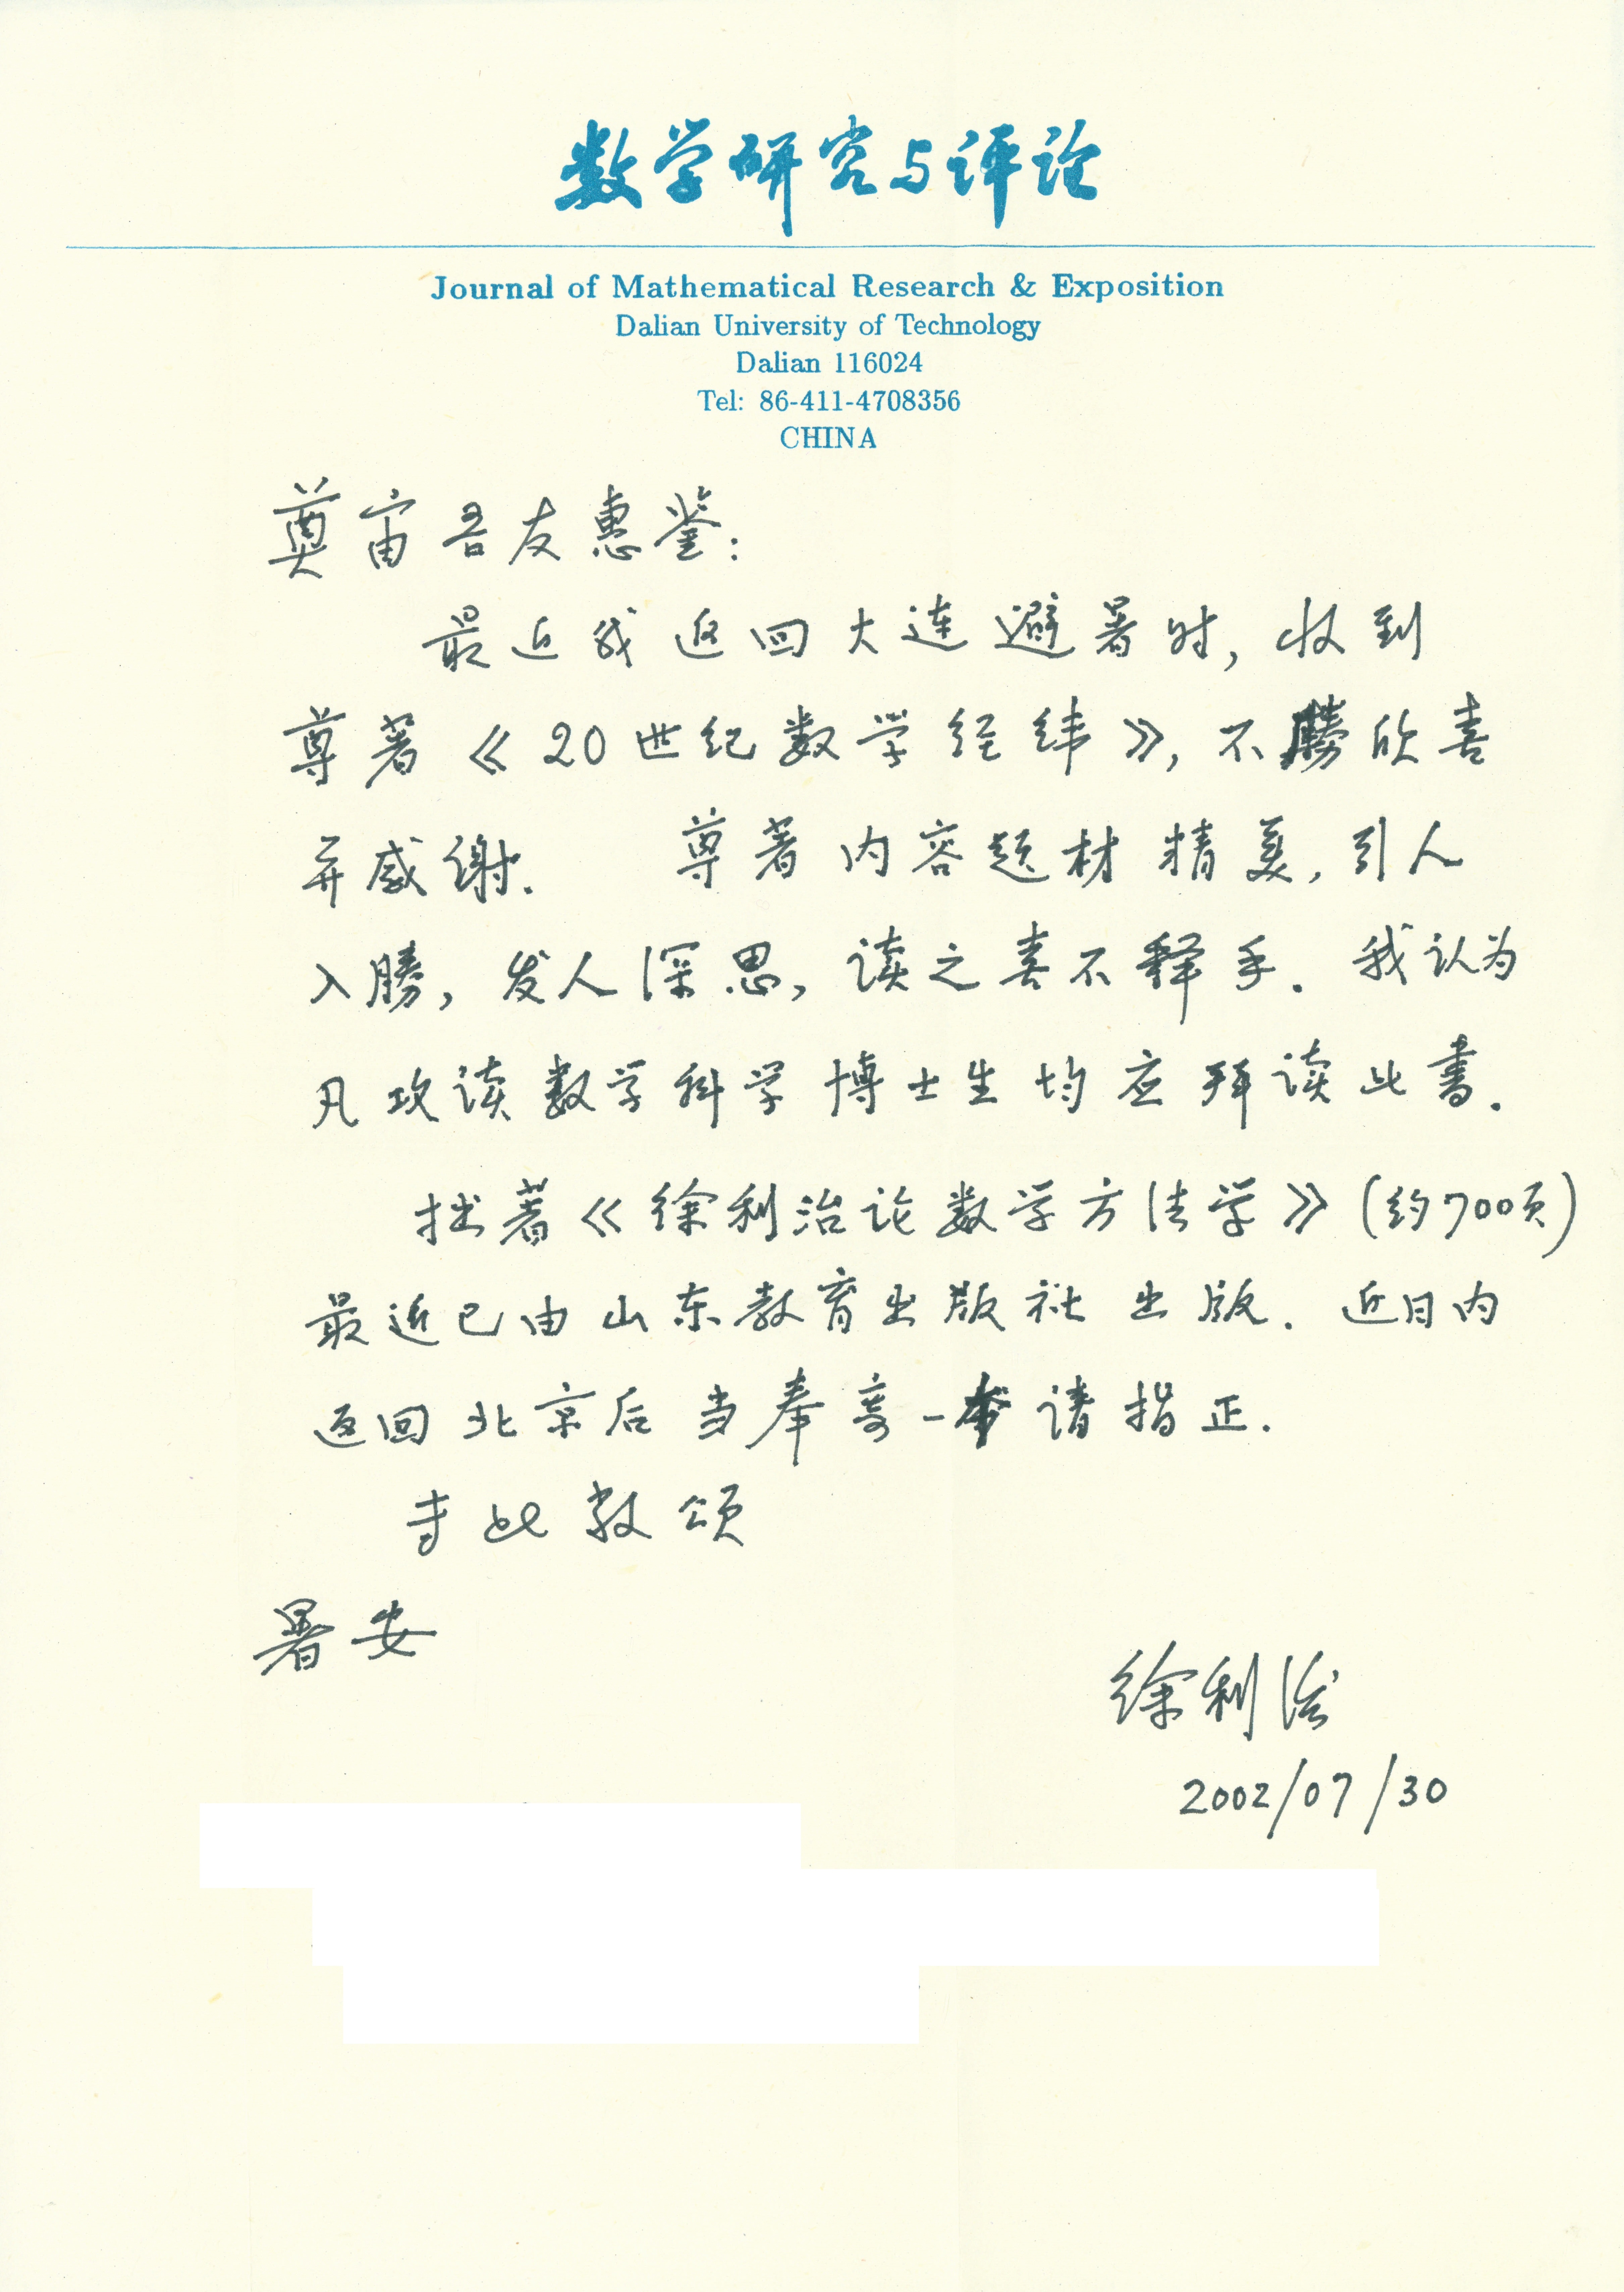 数学研究与评论
Journal of Mathematical Research & Exposition
Dalian University of Technology
Dalian 116024
Tel: 86-411-4708356
CHINA
奠宙吾友惠鉴:
最近我返回大连避暑时, 收到
尊著《20世纪数学经纬》, 不勝欣喜
并感谢. 尊著内容题材精美, 引人
入勝, 发人深思, 读之喜不释手. 我认为
凡攻读数学科学博士生均应拜读此書.
拙著《徐利治论数学方法学》(约700页)
最近已由山东教育出版社出版. 近日内
返回北京后当奉寄一本请指正.
专此敬颂
暑安
徐利治
2002/07/30